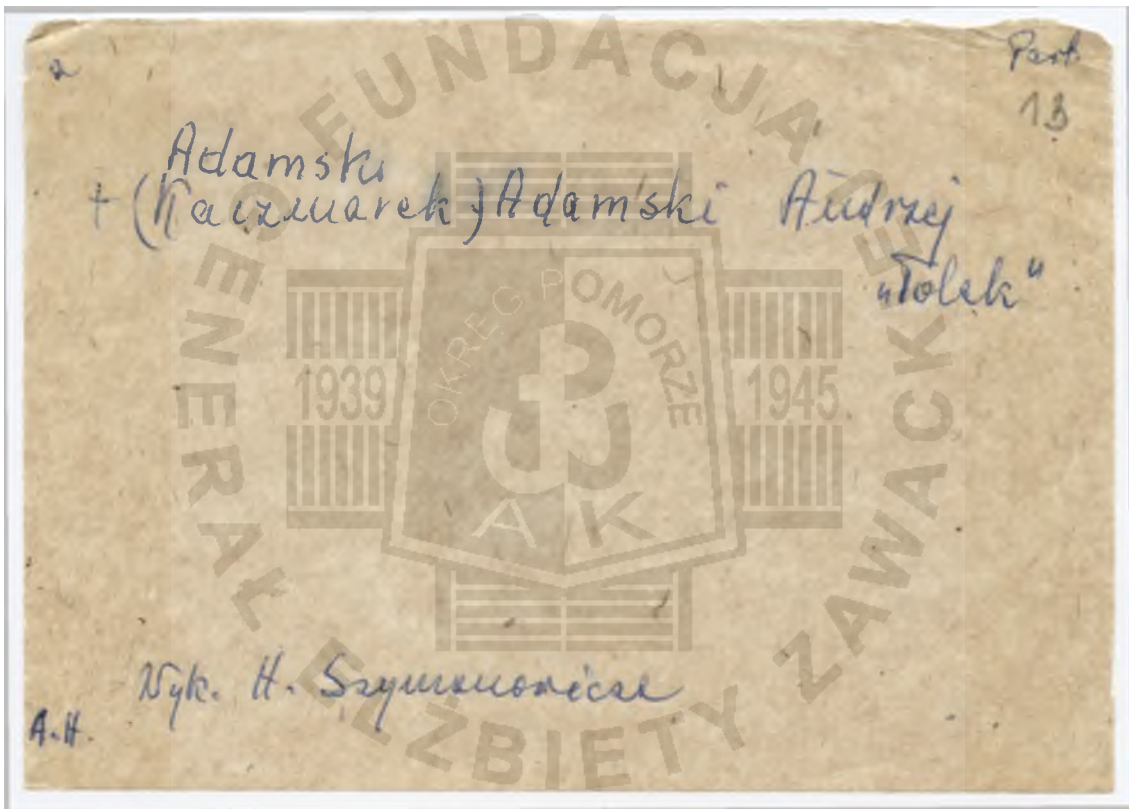 Part.
13
Adamski
+ (Kaczmarek) Adamski Andrzej
„Tolek"
Wyk. H. Szymanowicza
A.H.
FUNDACJA GENERAŁ ELŻBIETY ZAWACKIEJ
OKRĘG POMORZE
1939 1945
AK